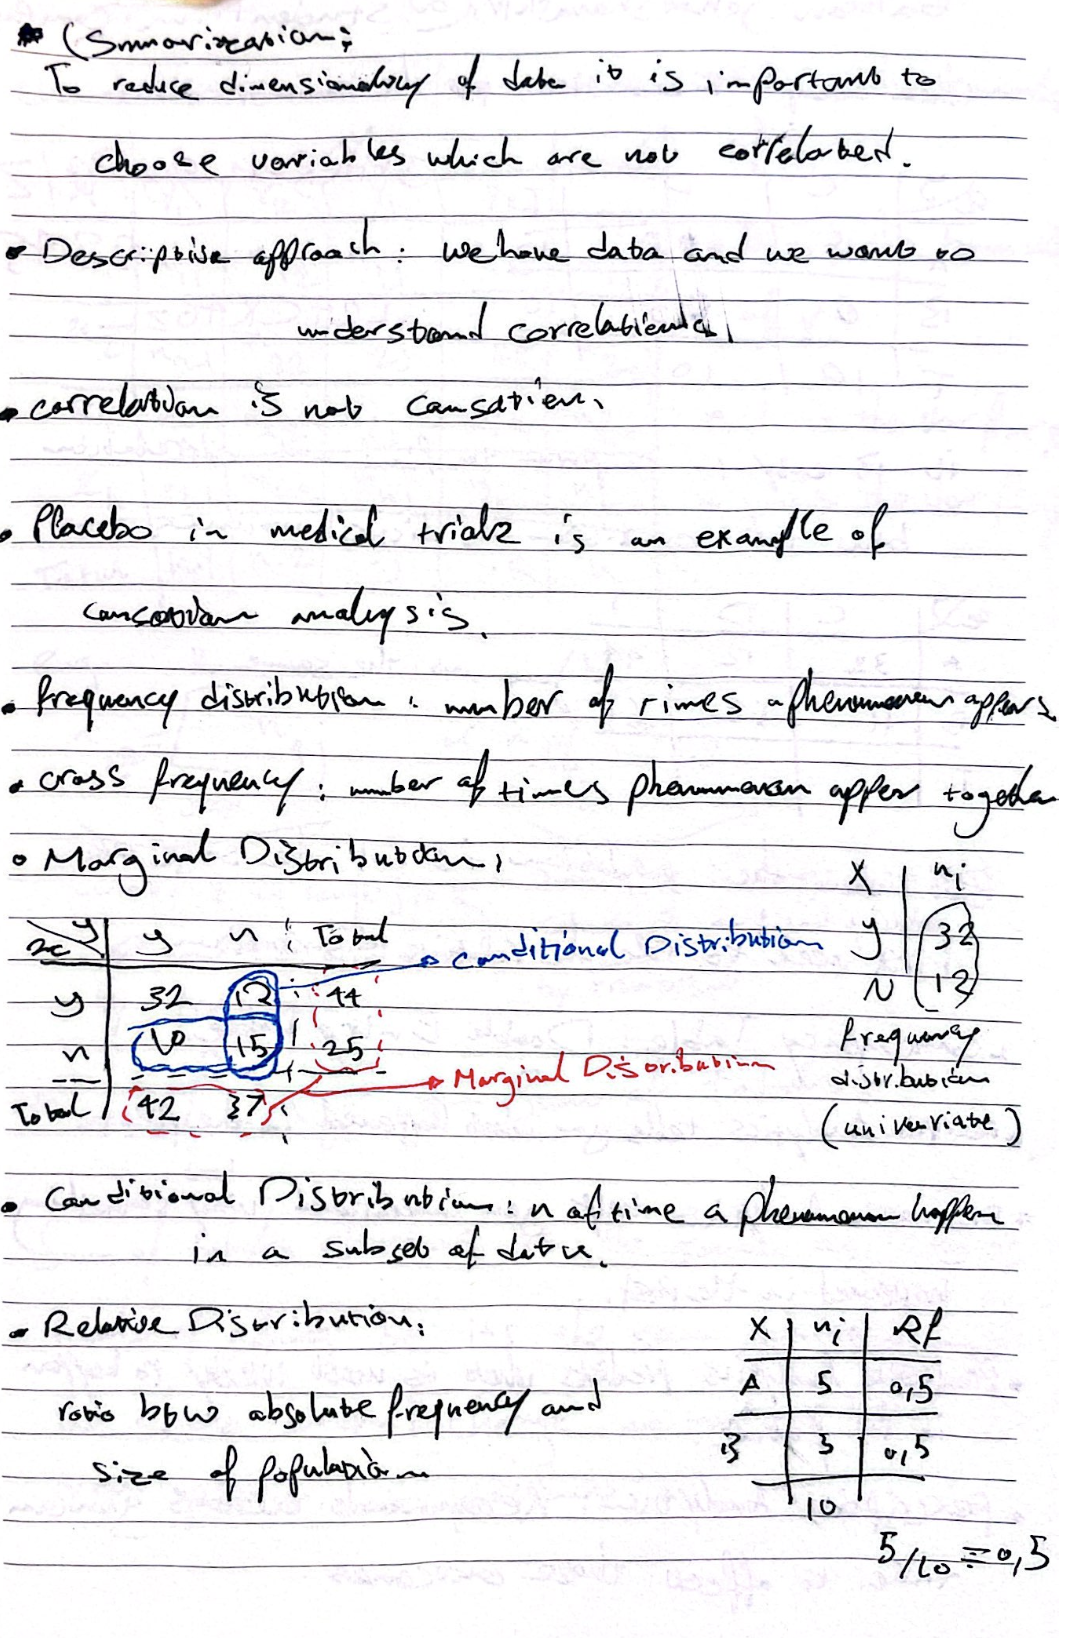 (Summarization:
To reduce dimensionality of data it is important to
choose variables which are not correlated.
• Descriptive approach: we have data and we want to
understand correlations.
• correlation is not causation.
• Placebo in medical trials is an example of
causation analysis.
• frequency distribution: number of times a phenomenon appears
• cross frequency: number of times phenomenon apper together
• Marginal Distribution:
X | ni
y | 32
N | 12
frequency
distribution
(univariate)
x y | y n Total
y 32 12 44
n 10 15 25
Total 42 27
Conditional Distribution
Marginal Distribution
• Conditional Distribution: n of time a phenomenon happen
in a subset of data.
• Relative Distribution:
ratio btw absolute frequency and
size of population
X | ni | Rf
A | 5 | 0,5
B | 5 | 0,5
10
5/10 = 0,5